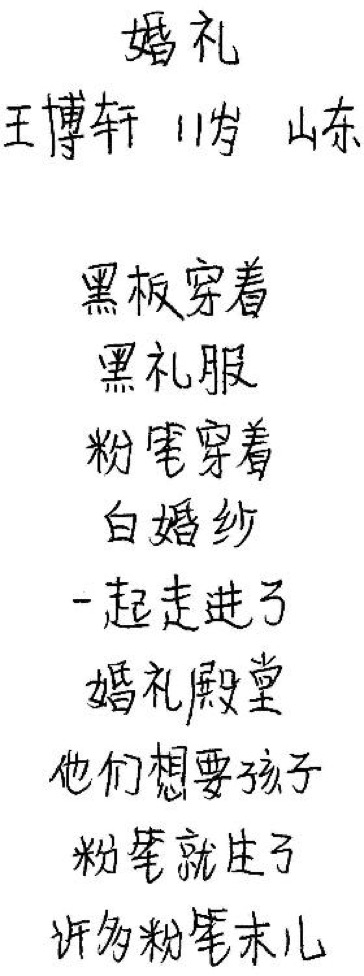 婚礼
王博轩 11岁 山东
黑板穿着
黑礼服
粉笔穿着
白婚纱
一起走进了
婚礼殿堂
他们想要孩子
粉笔就生了
许多粉笔末儿